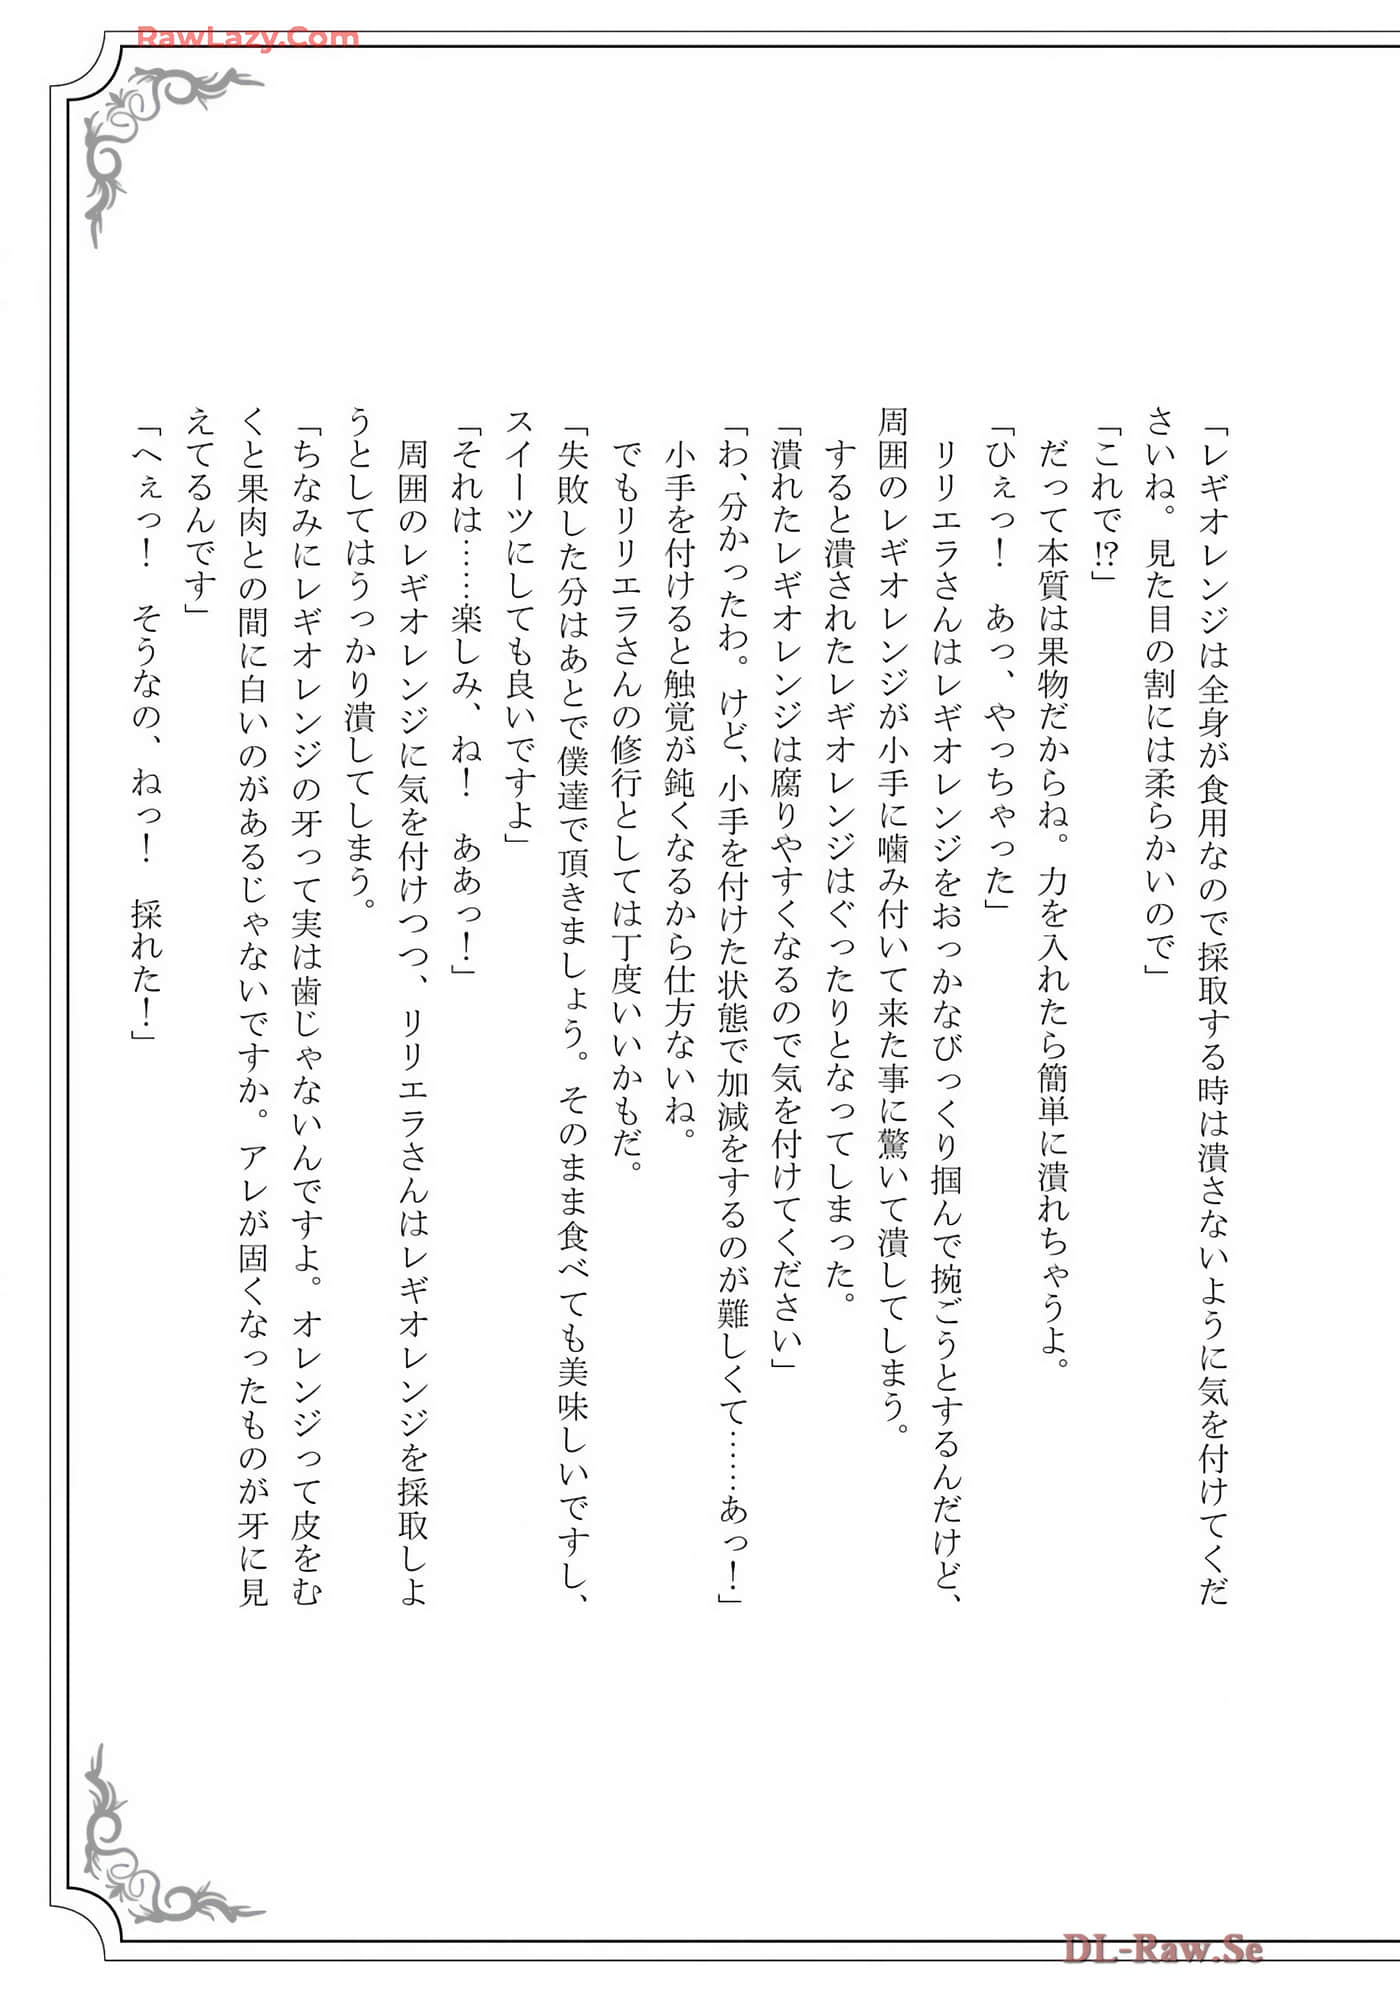 RawLazy.Com
「レギオレンジは全身が食用なので採取する時は潰さないように気を付けてくだ
さいね。見た目の割には柔らかいので」
「これで⁉」
だって本質は果物だからね。力を入れたら簡単に潰れちゃうよ。
「ひぇっ！　あっ、やっちゃった」
リリエラさんはレギオレンジをおっかなびっくり掴んで捥ごうとするんだけど、
周囲のレギオレンジが小手に噛み付いて来た事に驚いて潰してしまう。
すると潰されたレギオレンジはぐったりとなってしまった。
「潰れたレギオレンジは腐りやすくなるので気を付けてください」
「わ、分かったわ。けど、小手を付けた状態で加減をするのが難しくて……あっ！」
小手を付けると触覚が鈍くなるから仕方ないね。
でもリリエラさんの修行としては丁度いいかもだ。
「失敗した分はあとで僕達で頂きましょう。そのまま食べても美味しいですし、
スイーツにしても良いですよ」
「それは……楽しみ、ね！　ああっ！」
周囲のレギオレンジに気を付けつつ、リリエラさんはレギオレンジを採取しよ
うとしてはうっかり潰してしまう。
「ちなみにレギオレンジの牙って実は歯じゃないんですよ。オレンジって皮をむ
くと果肉との間に白いのがあるじゃないですか。アレが固くなったものが牙に見
えてるんです」
「へぇっ！　そうなの、ねっ！　採れた！」
DL-Raw.Se